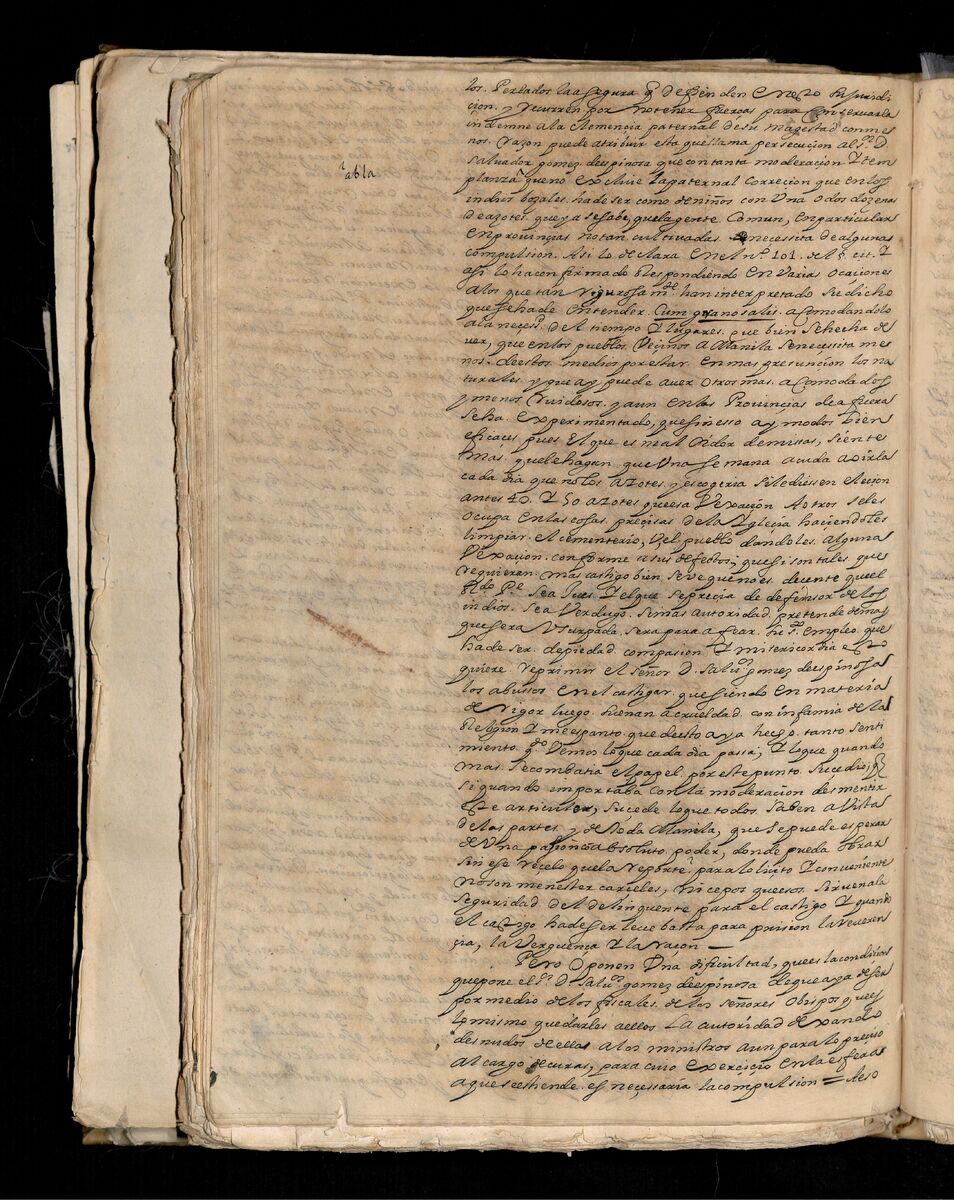 los. Perlados la asegura q̃ depende en esto su juridi
cion. y recurren por no tener fuerças para conservarla
indemne a la clemencia paternal de su magestad con me
nos. razon puede atribuir esta que llama persecucion al s.r D.
salvador gomez despinosa que con tanta moderacion y tem
planza que no excluie la paternal correcion que en los
indios bozales. ha de ser como de niños con una o dos dozenas
de azotes. que ya se sabe, que la gente. comun, en particular
en provinçias no tan cultivadas. necessita de algunas
compulsion. Asi lo declara en el n.º 101. del § cit. y
asi lo ha confirmado respondiendo en varias ocaciones
a los que tan rigurosam.te han interpretado su dicho
que se ha de entender. Cum grano salis. acomodandolo
a la neces.d del tiempo y lugares. que bien se hecha de
ver, que en los pueblos. veçinos a Manila se necessita me
nos. de estos medios por estar. en mas presunçion los na
turales. y que ay, puede aver otros mas. acomodados
y menos ruidosos. y aun en las Provinçias de a fuera
se ha. experimentado, que sin esso ay modos bien
eficaces. pues. el que es mal oidor de missas, siente
mas. que le hagan que una semana acuda a oirla
cada dia que no los azotes. y escogeria si le diessen elecion
antes 40. y 50 azotes que esa vexaçion. A otros se les
ocupa en las cosas. precisas de la Yglecia haciendoles
limpiar. el cimenterio, del pueblo dandoles. alguna
vexacion. conforme a sus defectos; que si son tales que
requieran. mas castigo bien se ve que no es. decente que el
R.do P.e sea Jues y el que se precia de defensor de los
indios. sea verdugo. si mas autoridad. pretende de mas
que sera usurpada. sera para afear. su s.to empleo. que
ha de ser. de piedad. compasion y misericordia esto
quiere reprimir el señor D. Salv.or gomez de espinosa
los abussos en el castigar. que siendo en materia
de rigor luego. suenan a crueldad. con infamia de la
Religion y me espanto. que de esto aya hecho. tanto senti
miento q.do vemos lo que cada dia passa; y lo que quando
mas. se combatia el papel. por este punto. sucedio; q̃
si quando importaba con la moderacion desmentir
este articulo, sucede lo que todos. saben a vista
de las partes. y de toda Manila, que se puede esperar
de una passion con absoluto. poder, donde pueda obrar
sin ese recelo que la reporte. para lo licito y conveniente
no son menester carceles, ni cepos que esos. sirven a la
seguridad del delinquente para el castigo y quando
el castigo ha de ser leve basta para prision la reveren
çia, la verguença y la razon —
Pero oponen una dificultad, que es la condicion
que pone el s.r D. Salv.or gomez de espinosa de que aya de ser
por medio de los fiscales. de los señores obispos que es
lo mismo que darles a ellos la autoridad dexando
desnudos de ella a los ministros aun para lo preciso
al cargo de curas, para cuio exercicio en la esfera
a que se estiende. es necessaria la compulsion = A eso